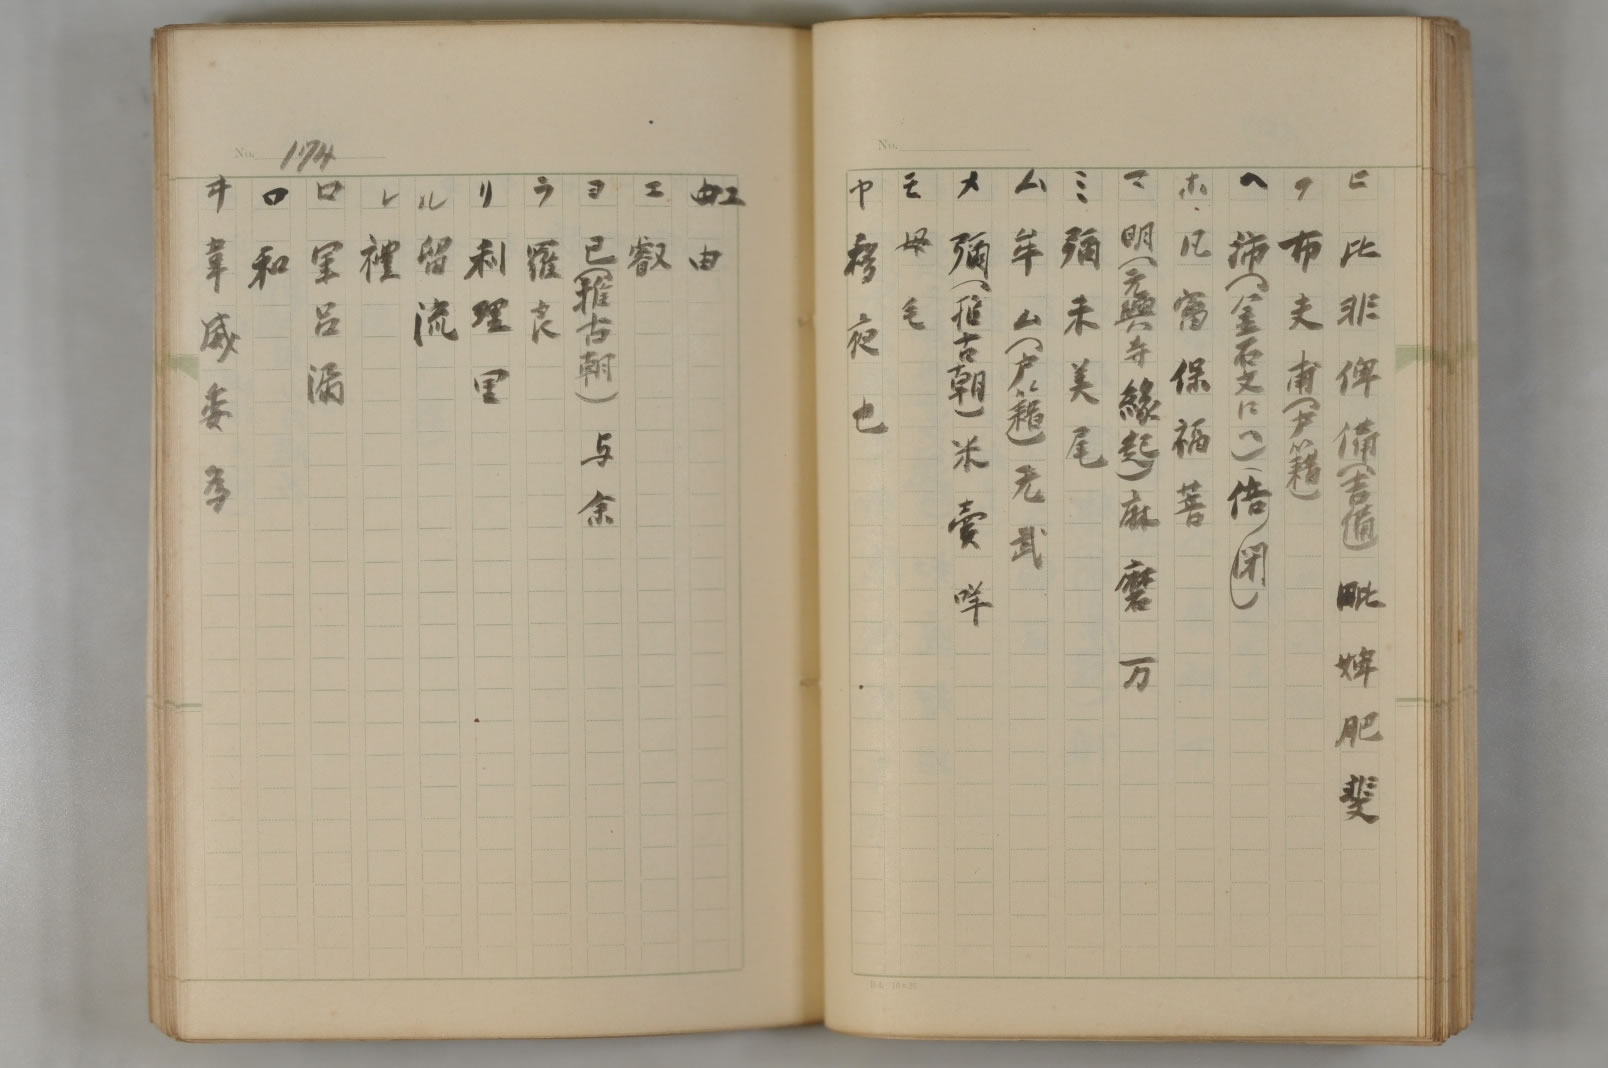 No.
ヒ 比 非 俾 備(吉備) 毗 婢 肥 斐
フ 布 夫 甫(戸籍)
ヘ 沛(金石文に) (倍) (閉)
ホ 凡 富 保 福 菩
マ 明(元興寺縁起) 麻 磨 万
ミ 彌 未 美 尾
ム 牟 ム(戸籍) 无 武
メ 彌(推古朝) 米 賣 咩
モ 母 毛
ヤ 移 夜 也
No. 174
由
エ 叡
ヨ 已(推古朝) 与 余
ラ 羅 良
リ 利 理 里
ル 留 流
レ 禮
ロ 呂
和
ヰ 韋 威 委 為